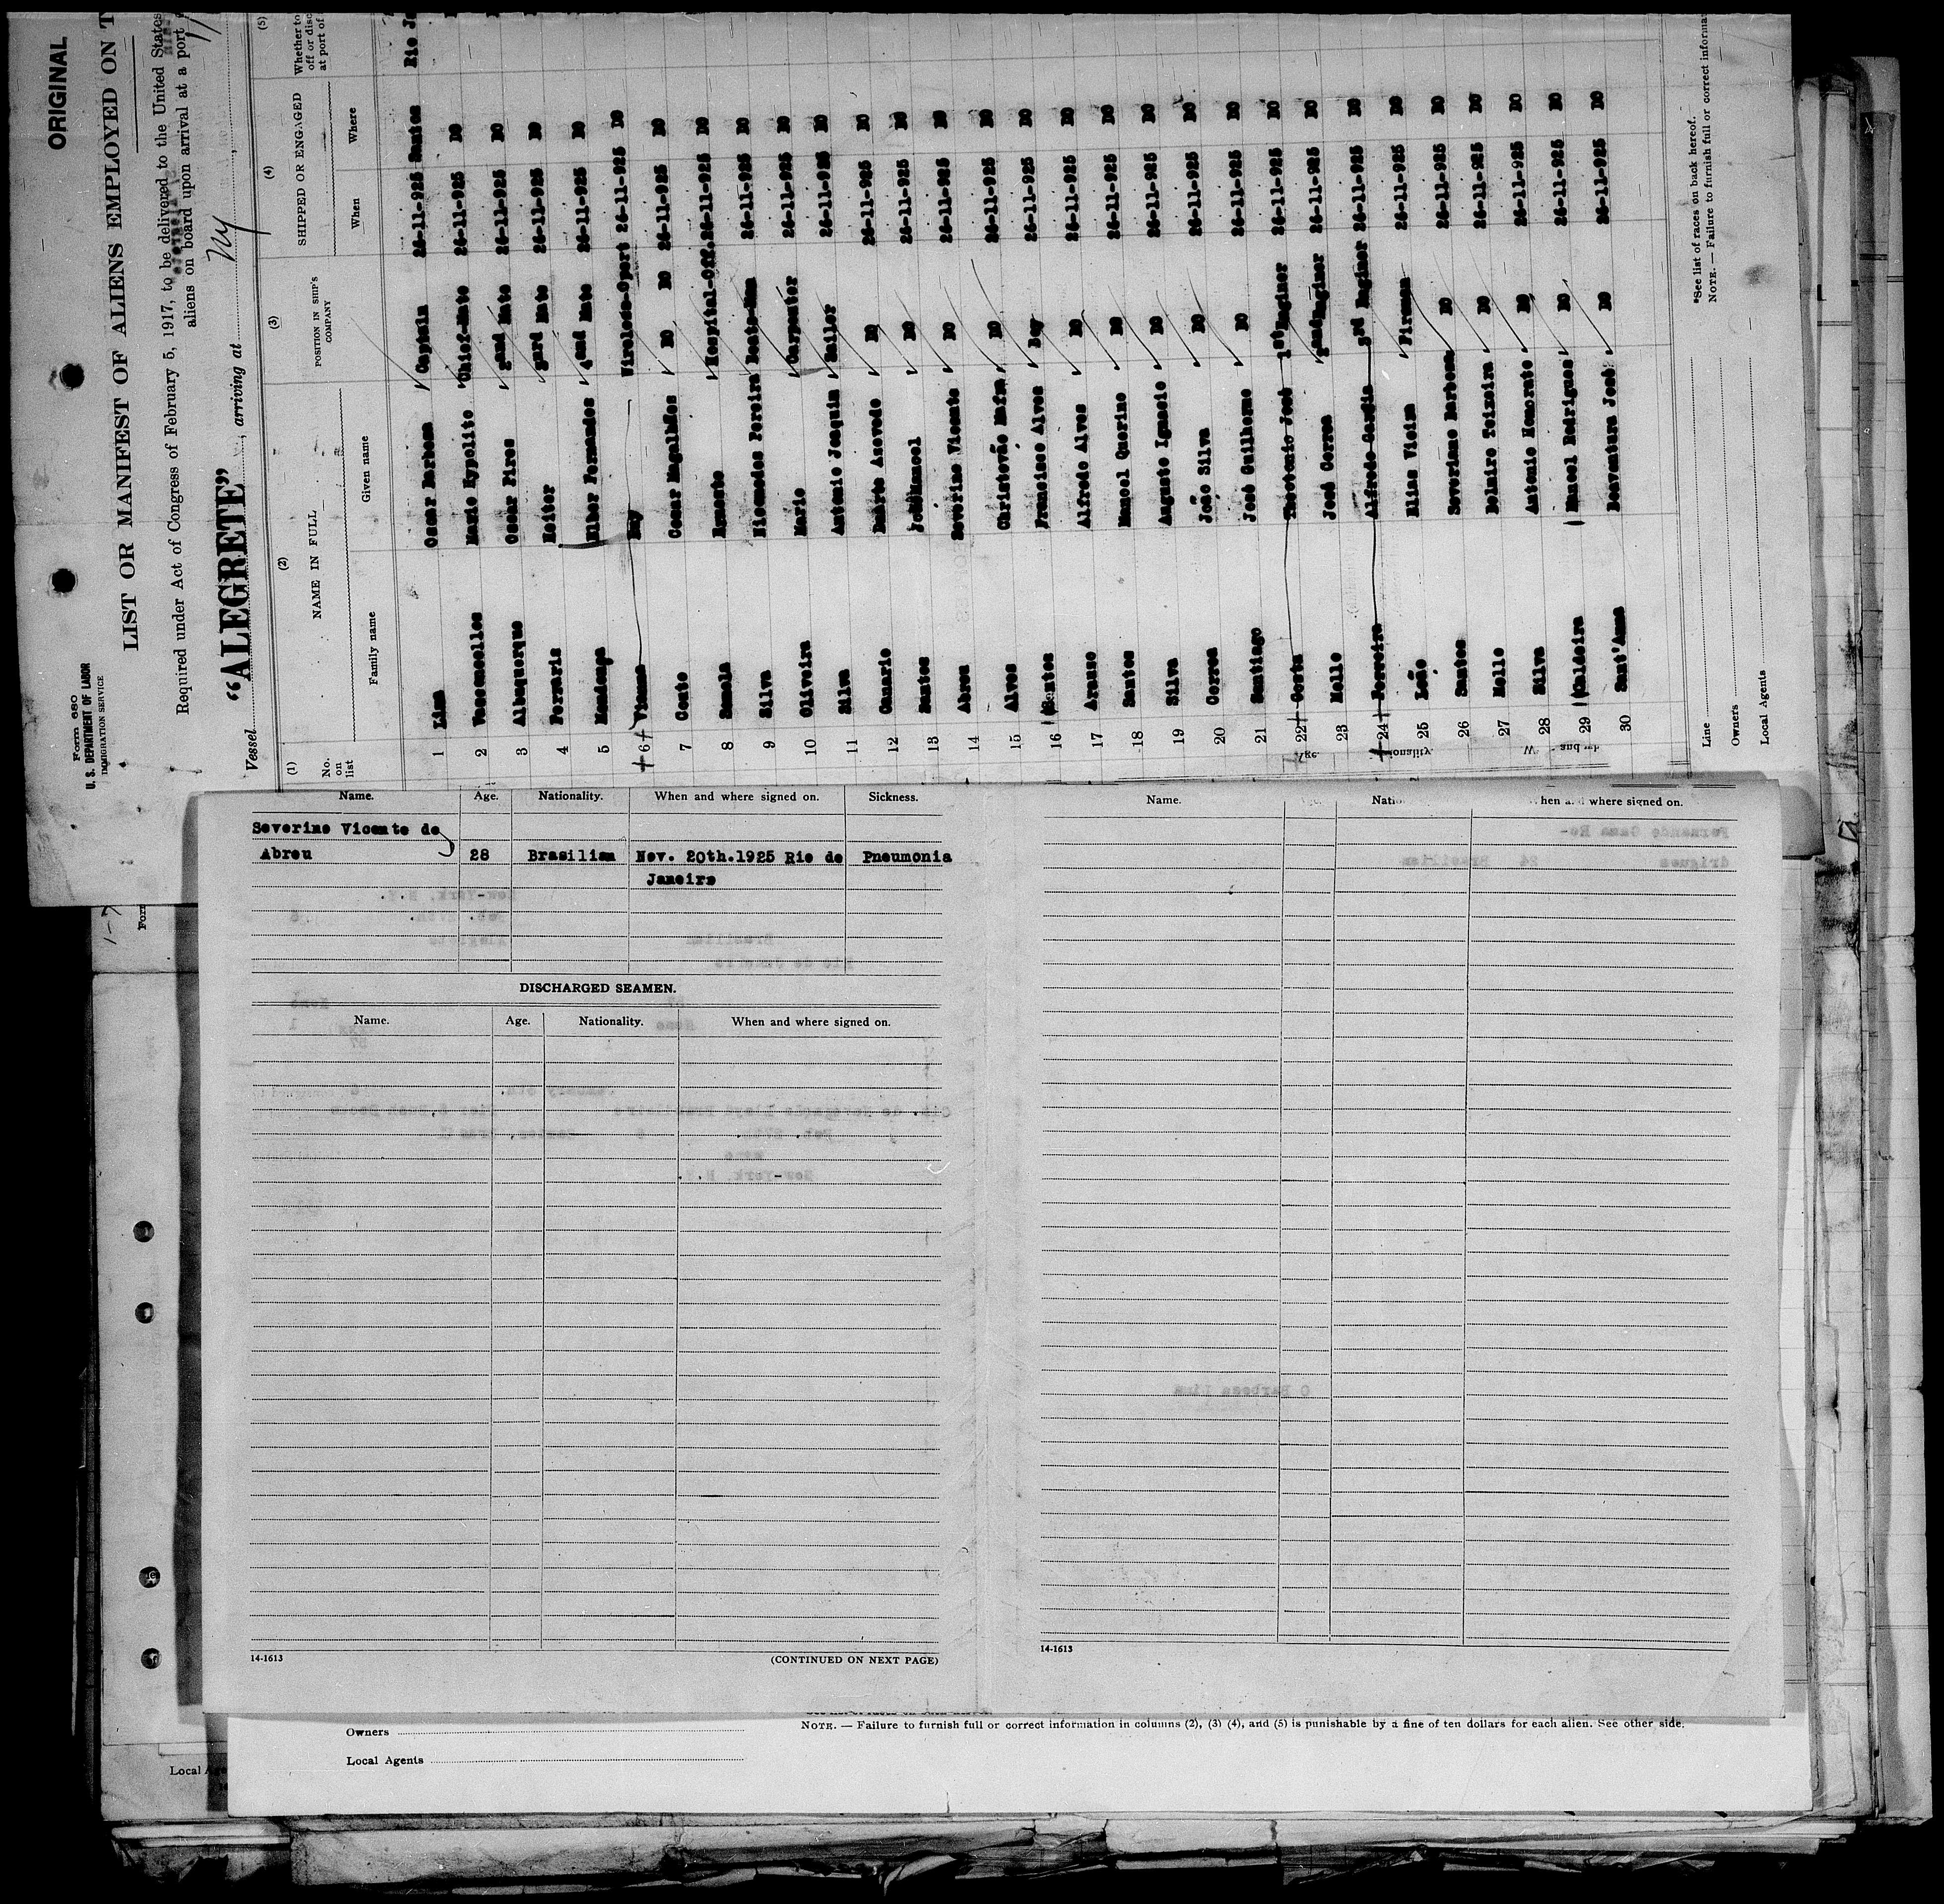 ORIGINAL
Form 680
U. S. DEPARTMENT OF LABOR
IMMIGRATION SERVICE
LIST OR MANIFEST OF ALIENS EMPLOYED ON T
Required under Act of Congress of February 5, 1917, to be delivered to the United States
aliens on board upon arrival at a port
Vessel "ALEGRETE", arriving at NY
(1) (2) (3) (4) (5)
No. on list NAME IN FULL POSITION IN SHIP'S COMPANY SHIPPED OR ENGAGED Whether to
off or disc
at port of
Family name Given name When Where
1 Lima Oscar Barbosa Captain 26-11-925 Santos Rio Ja
2 Vasconcellos Mario Hypolito Chief-Mate 26-11-925 DO
3 Albuquerque Oscar Pires 2and Mate 26-11-925 DO
4 Ferraris Heitor 3ard Mate 26-11-925 DO
5 Mendonça Hilber Fernandes 4and Mate 26-11-925 DO
6 Vianna Ruy Wireless-Opert 26-11-925 DO
7 Couto Cesar Magalhães DO DO 26-11-925 DO
8 Ernesto Hospital-Off. 26-11-925 DO
9 Silva Nicomedes Pereira Boats-Man 26-11-925 DO
10 Oliveira Mario Carpenter 26-11-925 DO
11 Silva Antonio Joaquim Sailor 26-11-925 DO
12 Canario Azevedo DO 26-11-925 DO
13 Santos José Manoel DO 26-11-925 DO
14 Abreu Severino Vicente DO 26-11-925 DO
15 Alves Christovão Mafra DO 26-11-925 DO
16 Santos Francisco Alves Boy 26-11-925 DO
17 Araujo Alfredo Alves DO 26-11-925 DO
18 Santos Manoel Querino DO 26-11-925 DO
19 Silva Augusto Ignacio DO 26-11-925 DO
20 Correa João Silva DO 26-11-925 DO
21 Santiago José Guilherme DO 26-11-925 DO
22 Costa Theotonio José 1st Enginer 26-11-925 DO
23 Mello José Correa 2and Enginer 26-11-925 DO
24 Ferreira Alfredo Garcia 3rd Enginer 26-11-925 DO
25 Leão Elias Vieira Fireman 26-11-925 DO
26 Santos Severiano Barbosa DO 26-11-925 DO
27 Mello Delmiro Teixeira DO 26-11-925 DO
28 Silva Antonio Honorato DO 26-11-925 DO
29 Caldeira Manoel Rodrigues DO 26-11-925 DO
30 Sant'Anna Boaventura José DO 26-11-925 DO
Line
Owners
Local Agents
*See list of races on back hereof.
NOTE. — Failure to furnish full or correct informat
Name. Age. Nationality. When and where signed on. Sickness.
Severino Vicente de
Abreu 28 Brasilian Nov. 20th.1925 Rio de Pneumonia
Janeiro
DISCHARGED SEAMEN.
Name. Age. Nationality. When and where signed on.
14-1613 (CONTINUED ON NEXT PAGE)
Name. Natio hen and where signed on.
14-1613
Owners
Local Agents
NOTE. — Failure to furnish full or correct information in columns (2), (3) (4), and (5) is punishable by a fine of ten dollars for each alien. See other side.
Local Age